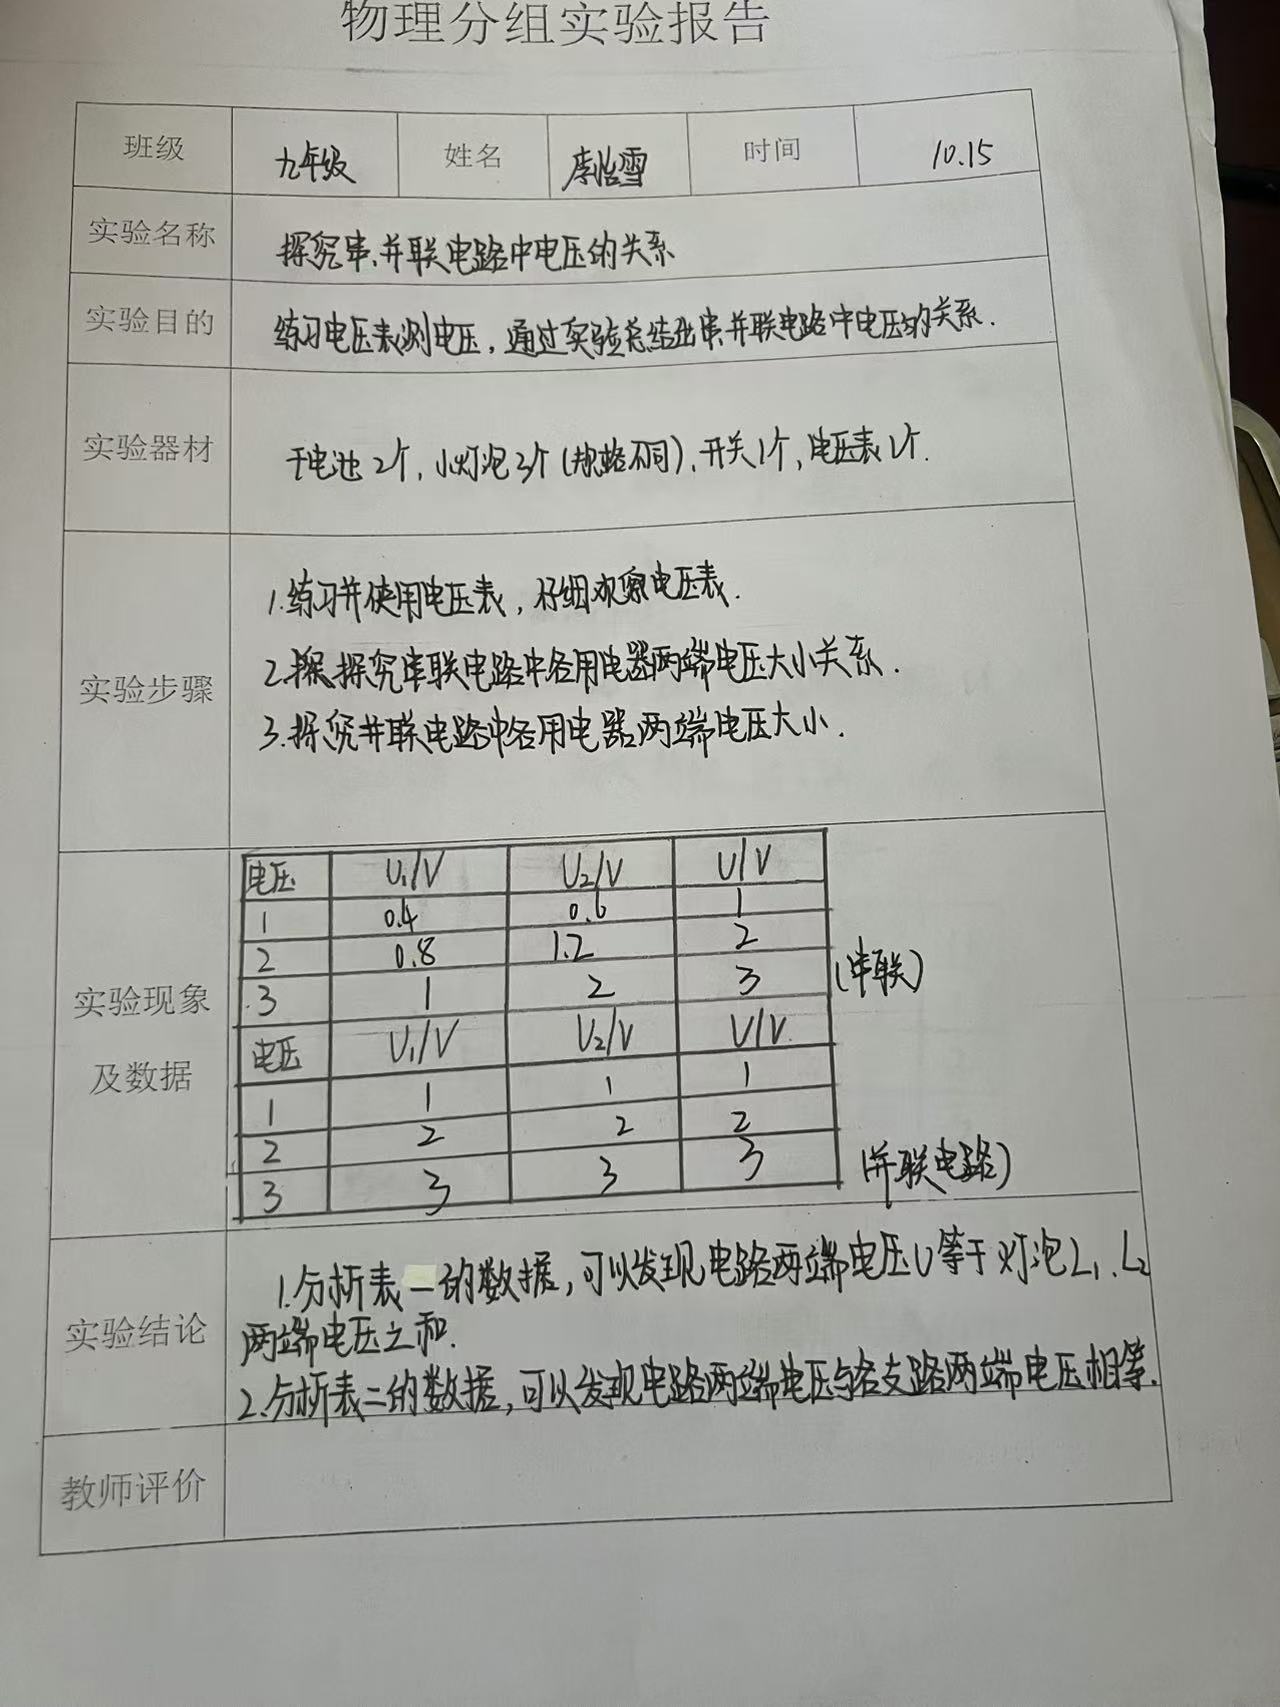 物理分组实验报告
班级 九年级 姓名 李怡雪 时间 10.15
实验名称 探究串、并联电路中电压的关系
实验目的 练习电压表测电压，通过实验总结出串、并联电路中电压的关系.
实验器材 干电池2个，小灯泡3个(规格不同)、开关1个，电压表1个.
实验步骤
1.练习并使用电压表，仔细观察电压表.
2.探究串联电路中各用电器两端电压大小关系.
3.探究并联电路中各用电器两端电压大小.
实验现象
及数据
电压 U₁/V U₂/V U/V
1 0.4 0.6 1
2 0.8 1.2 2
3 1 2 3 (串联)
电压 U₁/V U₂/V U/V
1 1 1 1
2 2 2 2
3 3 3 3 (并联电路)
实验结论
1.分析表一的数据，可以发现电路两端电压U等于灯泡L₁、L₂
两端电压之和.
2.分析表二的数据，可以发现电路两端电压与各支路两端电压相等.
教师评价